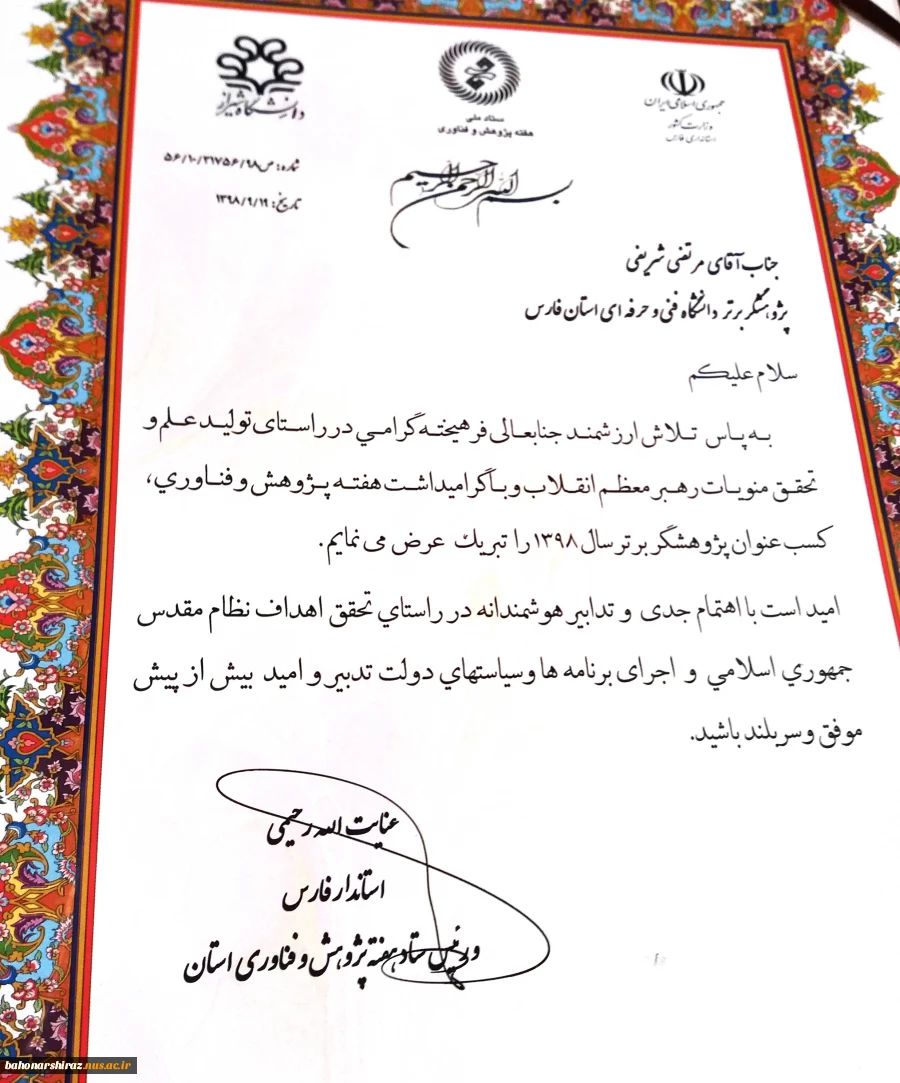 جمهوری اسلامی ایران
وزارت کشور
استانداری فارس
ستاد ملی
هفته پژوهش و فناوری
دانشگاه شیراز
شماره: ص۵۶/۱۰/۳۱۷۵۶/۹۸
تاریخ: ۱۳۹۸/۹/۱۹
بسم الله الرحمن الرحیم
جناب آقای مرتضی شریفی
پژوهشگر برتر دانشگاه فنی و حرفه ای استان فارس
سلام علیکم
به پاس تلاش ارزشمند جنابعالی فرهیخته گرامي در راستای تولید علم و
تحقق منویات رهبر معظم انقلاب و با گرامیداشت هفته پژوهش و فناوري،
کسب عنوان پژوهشگر برتر سال ۱۳۹۸ را تبریک عرض می نمایم.
امید است با اهتمام جدی و تدابیر هوشمندانه در راستاي تحقق اهداف نظام مقدس
جمهوري اسلامي و اجرای برنامه ها وسیاستهاي دولت تدبیر و امید بیش از پیش
موفق و سربلند باشید.
عنایت الله رحیمی
استاندار فارس
و رئیس ستاد هفته پژوهش و فناوری استان
bahonarshiraz.nus.ac.ir